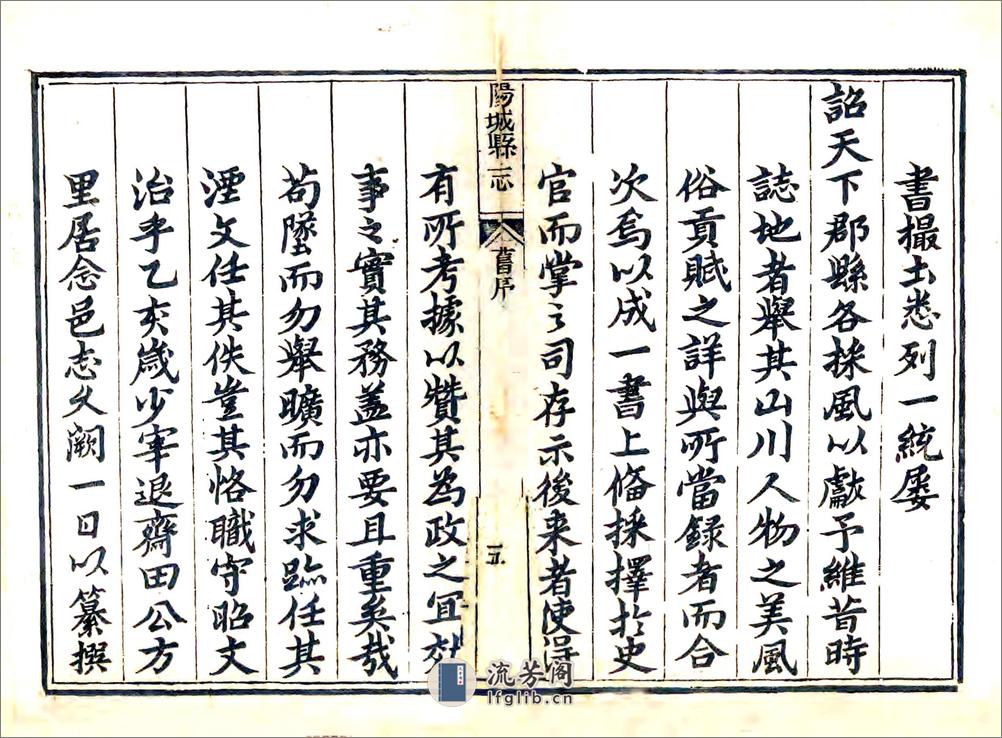 書撮土悉列一統屡
詔天下郡縣各採風以獻予維昔時
誌地者舉其山川人物之美風
俗貢賦之詳與所當録者而合
次焉以成一書上俻採擇扵史
官而掌之司存示後来者使得
陽城縣志 舊序 五
有所考據以贊其為政之冝
事之實其務盖亦要且重矣哉
苟墜而勿舉曠而勿求
任其
湮文任其佚豈其恪職守昭文
治乎乙亥歲少宰退齋田公方
里居念邑志久闕一日以纂撰
流芳阁
lfglib.cn